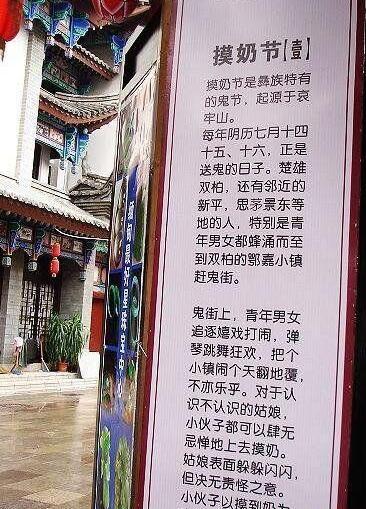 摸奶节【壹】
摸奶节是彝族特有
的鬼节，起源于哀
牢山。
每年阴历七月十四
十五、十六，正是
送鬼的日子。楚雄
双柏，还有邻近的
新平，思茅景东等
地的人，特别是青
年男女都蜂涌而至
到双柏的鄂嘉小镇
赶鬼街。
鬼街上，青年男女
追逐嬉戏打闹，弹
琴跳舞狂欢，把个
小镇闹个天翻地覆，
不亦乐乎。对于认
识不认识的姑娘，
小伙子都可以肆无
忌惮地上去摸奶。
姑娘表面躲躲闪闪，
但决无责怪之意。
小伙子以摸到奶为